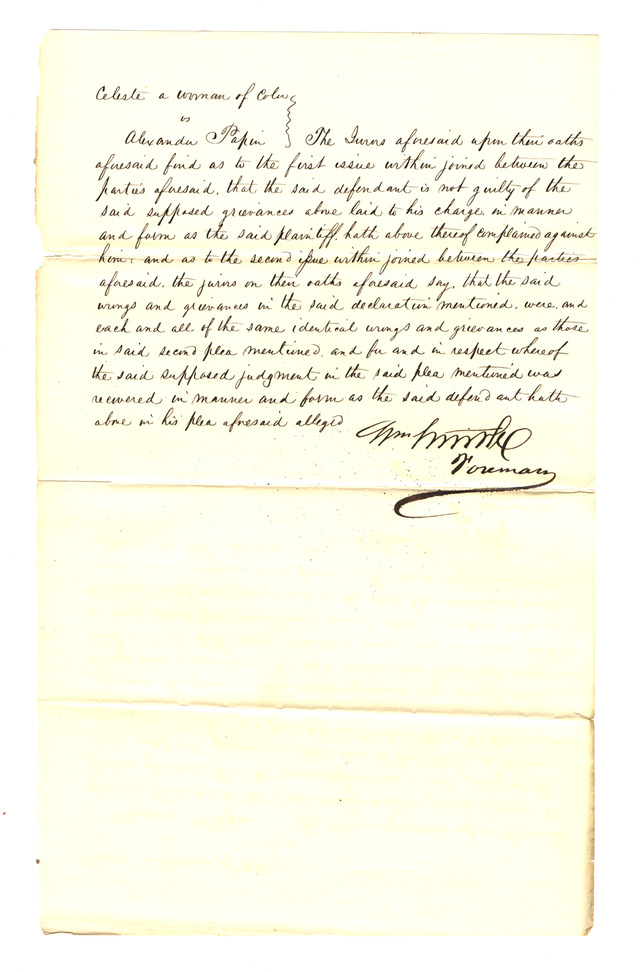 Celeste a woman of Color
vs
Alexander Papin } The Jurors aforesaid upon their oaths
aforesaid find as to the first issue within joined between the
parties aforesaid, that the said defendant is not guilty of the
said supposed grievances above laid to his charge, in manner
and form as the said plaintiff, hath above thereof complained against
him; and as to the second issue within joined between the parties
aforesaid, the jurors on their oaths aforesaid say, that the said
wrongs and grievances in the said declaration mentioned, were, and
each and all of the same identical wrongs and grievances as those
in said second plea mentioned, and for and in respect whereof
the said supposed judgment in the said plea mentioned was
recovered in manner and form as the said defendant hath
above in his plea aforesaid alleged
Wm
Foreman